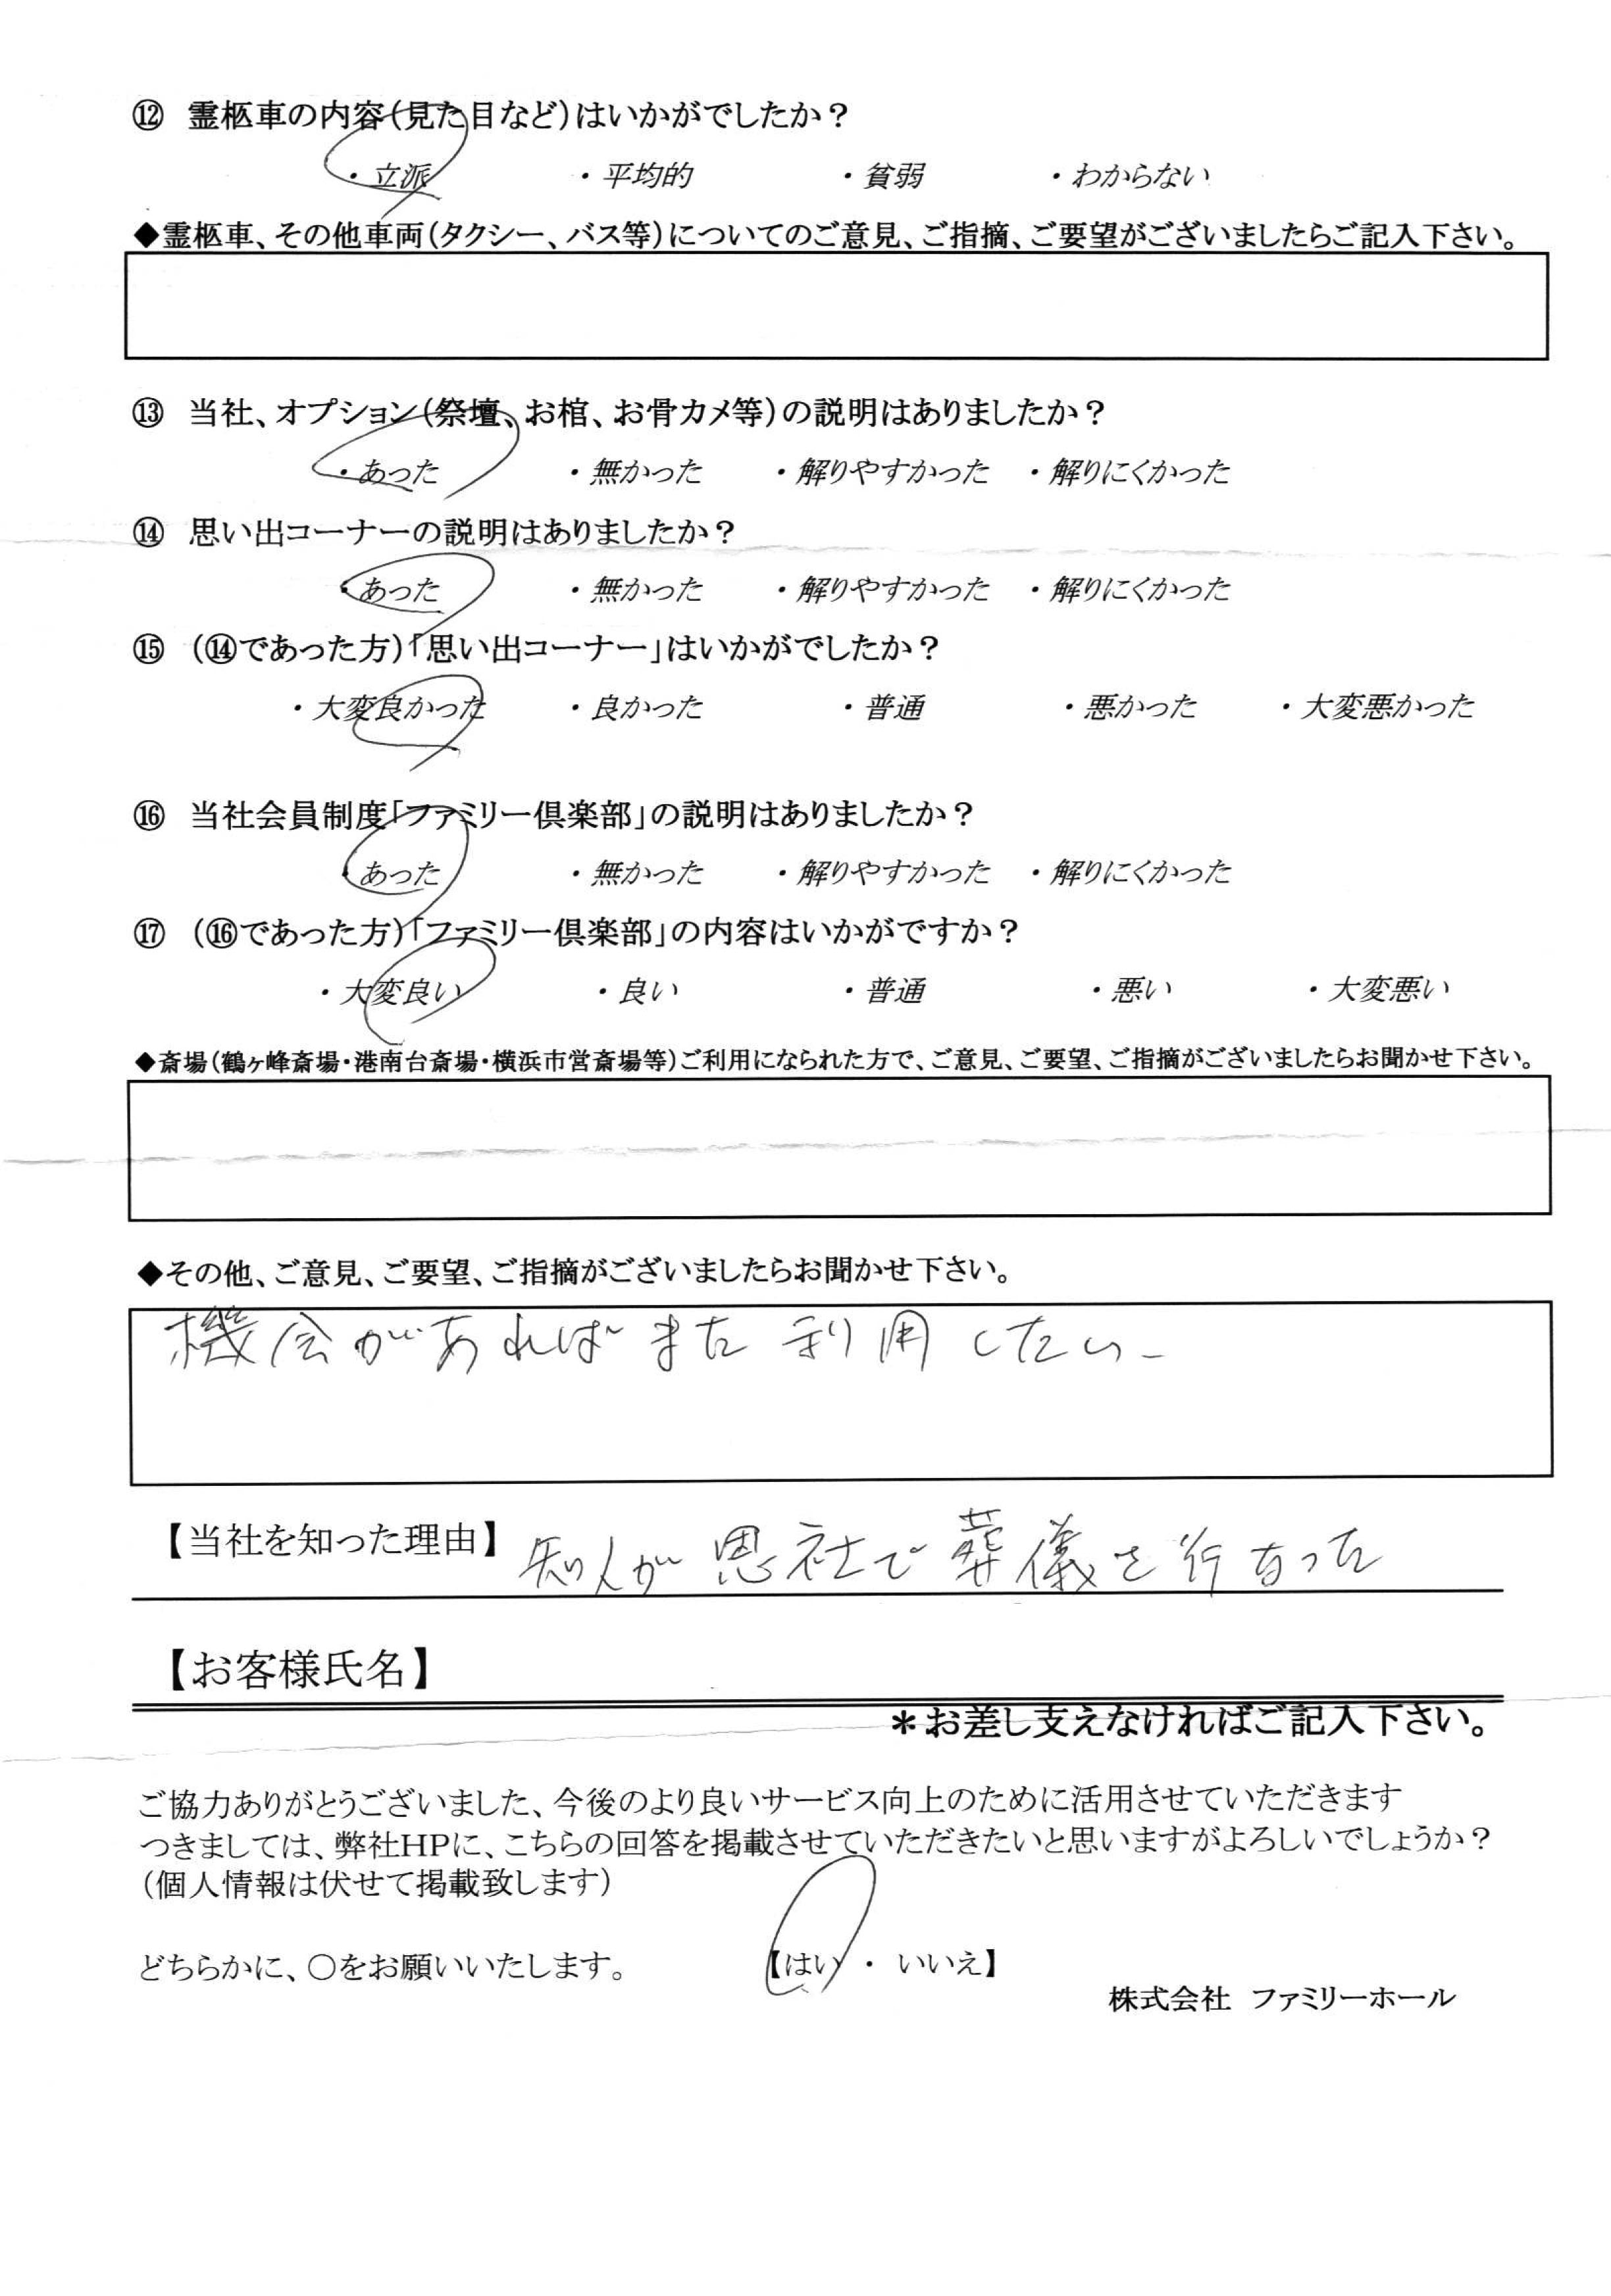 ⑫ 霊柩車の内容(見た目など)はいかがでしたか？
・立派 ・平均的 ・貧弱 ・わからない
◆霊柩車、その他車両(タクシー、バス等)についてのご意見、ご指摘、ご要望がございましたらご記入下さい。
⑬ 当社、オプション(祭壇、お棺、お骨カメ等)の説明はありましたか？
・あった ・無かった ・解りやすかった ・解りにくかった
⑭ 思い出コーナーの説明はありましたか？
・あった ・無かった ・解りやすかった ・解りにくかった
⑮ (⑭であった方)「思い出コーナー」はいかがでしたか？
・大変良かった ・良かった ・普通 ・悪かった ・大変悪かった
⑯ 当社会員制度「ファミリー倶楽部」の説明はありましたか？
・あった ・無かった ・解りやすかった ・解りにくかった
⑰ (⑯であった方)「ファミリー倶楽部」の内容はいかがですか？
・大変良い ・良い ・普通 ・悪い ・大変悪い
◆斎場(鶴ヶ峰斎場・港南台斎場・横浜市営斎場等)ご利用になられた方で、ご意見、ご要望、ご指摘がございましたらお聞かせ下さい。
◆その他、ご意見、ご要望、ご指摘がございましたらお聞かせ下さい。
機会があればまた利用したい
【当社を知った理由】 知人が恩社で葬儀を行なった
【お客様氏名】
＊お差し支えなければご記入下さい。
ご協力ありがとうございました、今後のより良いサービス向上のために活用させていただきます
つきましては、弊社HPに、こちらの回答を掲載させていただきたいと思いますがよろしいでしょうか？
(個人情報は伏せて掲載致します)
どちらかに、〇をお願いいたします。 【はい ・ いいえ】
株式会社 ファミリーホール